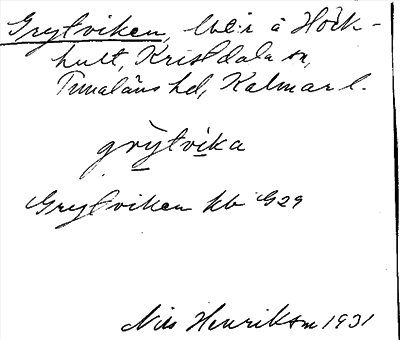 Grytviken, lve:r å Höck-
hult, Kristdala sn,
Tunaläns hd, Kalmar l.
grỳtvìka
Grytviken kb G29
Nils Henrikson 1931